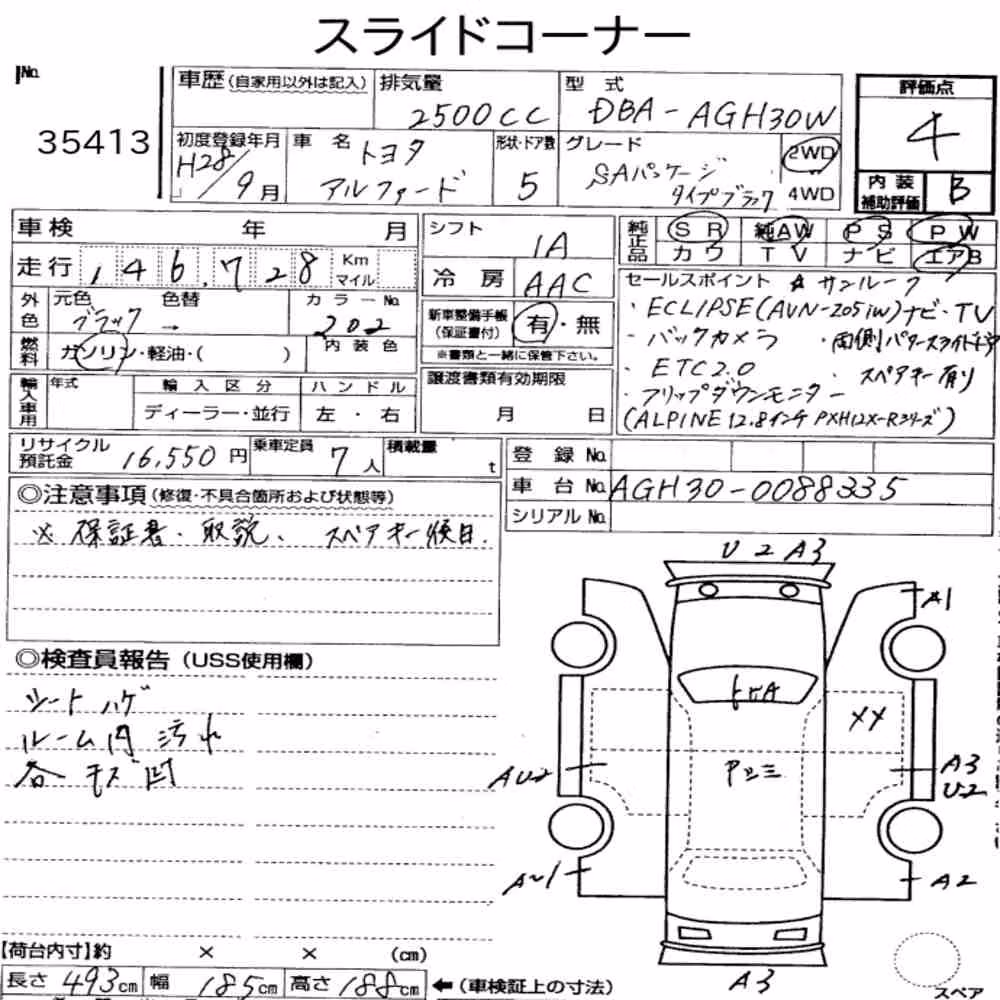 スライドコーナー
No.
35413
車歴(自家用以外は記入)
排気量
2500CC
型式
DBA-AGH30W
評価点
4
初度登録年月
H28/9月
車名
トヨタ
アルファード
形状・ドア数
5
グレード
SAパッケージ
タイプブラック
2WD
4WD
内装
補助評価
B
車検 年 月
走行 146,728 Km
マイル
シフト
IA
冷房 AAC
純正品
SR 純AW PS PW
カワ TV ナビ エアB
外色
元色 色替 カラーNo.
ブラック → 202
燃料
ガソリン・軽油・( )
内装色
新車整備手帳
(保証書付)
有・無
※書類と一緒に保管下さい。
セールスポイント ☆サンルーフ
・ECLIPSE(AVN-Z05iw)ナビ・TV
・バックカメラ ・両側パワースライドドア
・ETC2.0 ・スペアキー有り
・フリップダウンモニター
(ALPINE 12.8インチ PXH12X-R3シリーズ)
輸入車用
年式 輸入区分 ハンドル
ディーラー・並行 左・右
譲渡書類有効期限
月 日
リサイクル
預託金
16,550円
乗車定員
7人
積載量
t
登録No.
車台No. AGH30-0088335
シリアルNo.
◎注意事項(修復・不具合箇所および状態等)
※保証書、取説、スペアキー後日.
◎検査員報告(USS使用欄)
シートハゲ
ルーム内汚れ
各キズ凹
U2 A3
A1
XX
AU2
A3
U2
A1
A2
A3
【荷台内寸】約 × × (cm)
長さ 493cm 幅 185cm 高さ 188cm ←(車検証上の寸法)
スペア